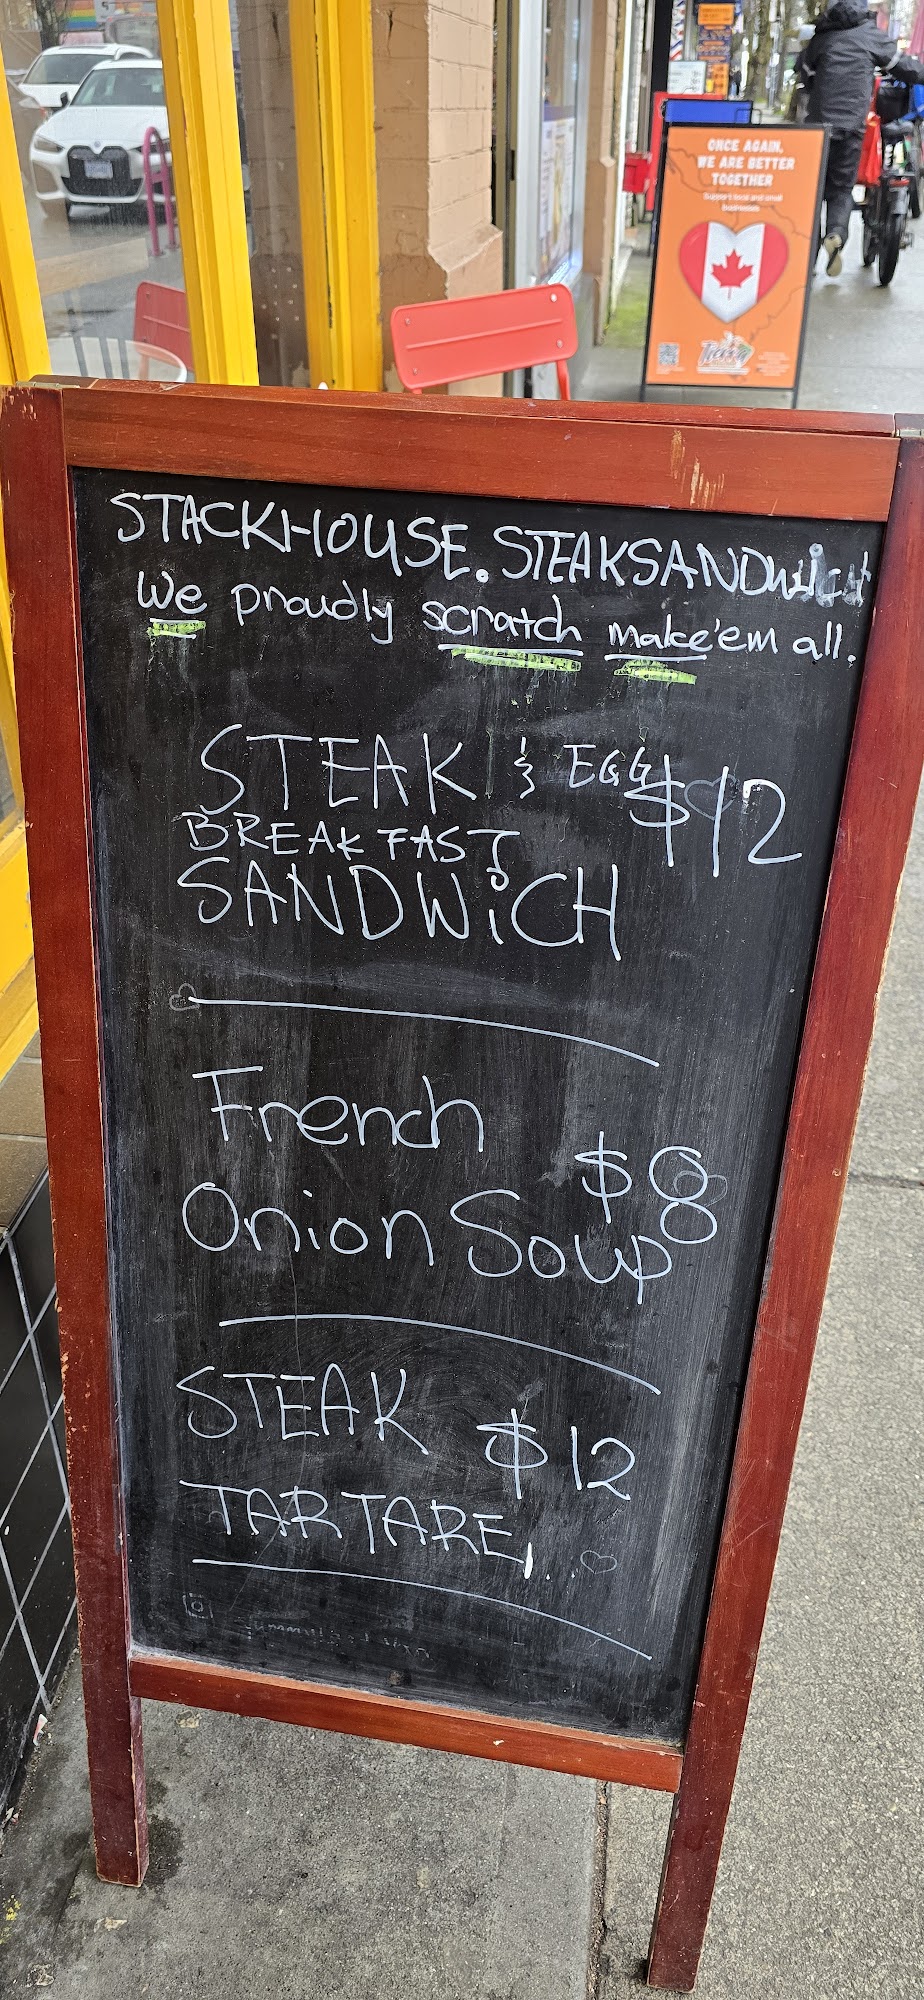 ONCE AGAIN,
WE ARE BETTER
TOGETHER
Support local and small
businesses
STACKHOUSE. STEAKSANDWiCH
We proudly scratch make'em all.
STEAK & EGG
$12
BREAKFAST
SANDWiCH
French
$8
Onion Soup
STEAK
$12
TARTARE,..